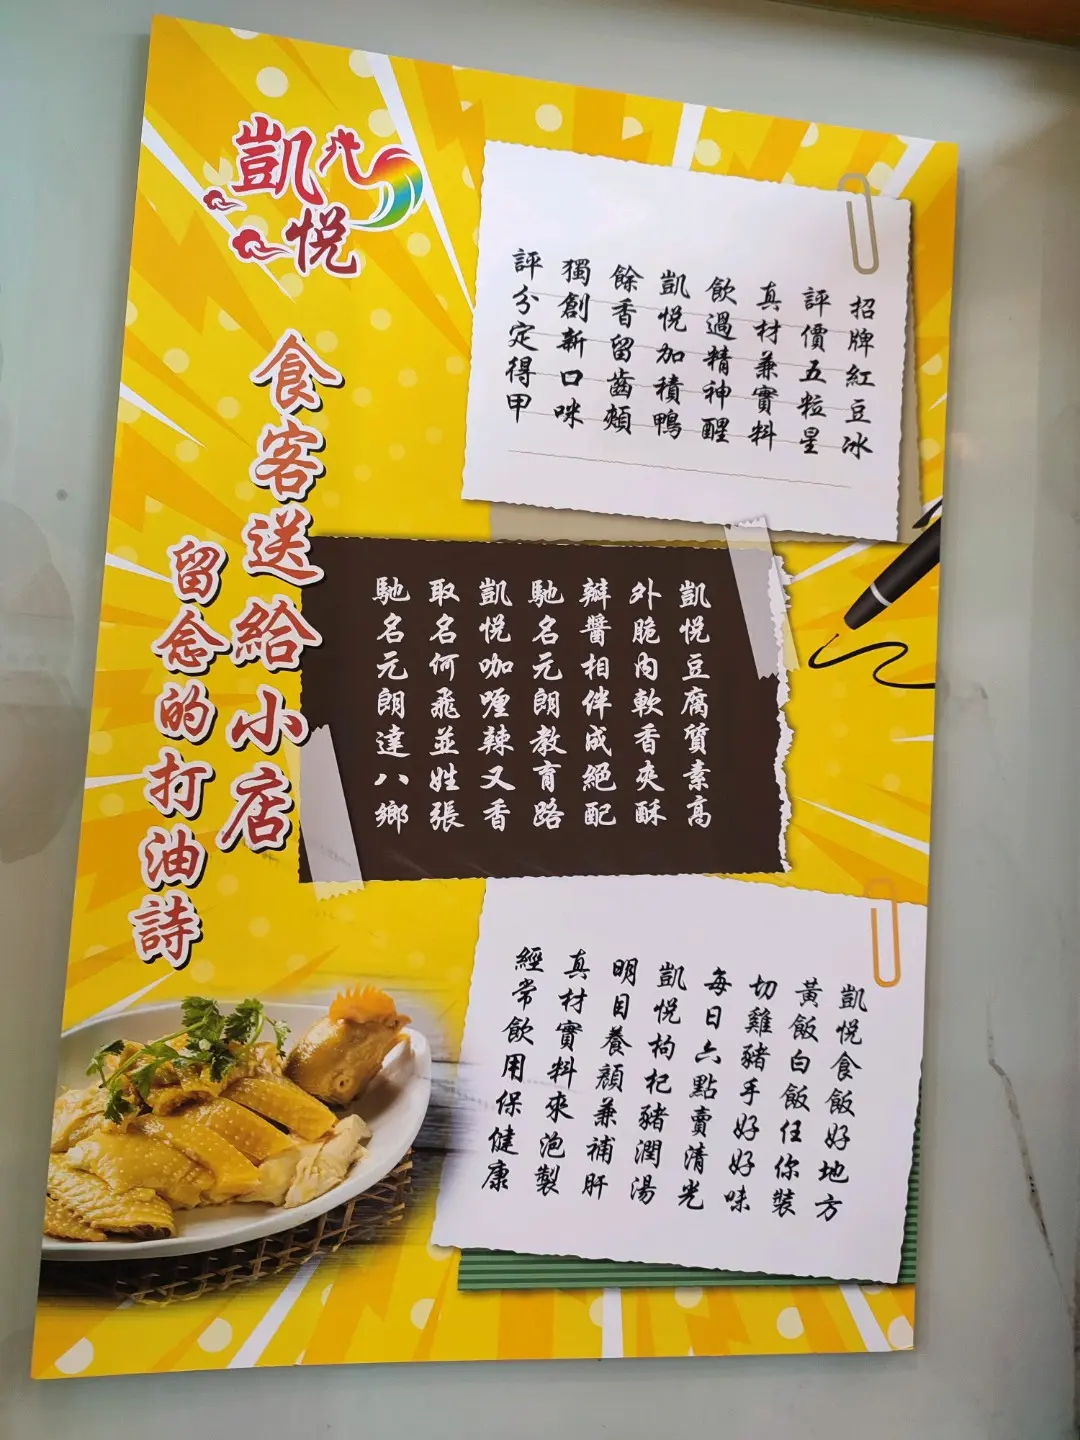 凱悦
食客送給小店
留念的打油詩
招牌紅豆冰
評價五粒星
真材兼實料
飲過精神醒
凱悦加積鴨
餘香留齒頰
獨創新口味
評分定得甲
凱悦豆腐質素高
外脆內軟香夾酥
辦醬相伴成絕配
馳名元朗教育路
凱悦咖喱辣又香
取名何飛並姓張
馳名元朗達八鄉
凱悦食飯好地方
黃飯白飯任你裝
切雞豬手好好味
每日六點賣清光
凱悦枸杞豬潤湯
明目養顏兼補肝
真材實料來泡製
經常飲用保健康